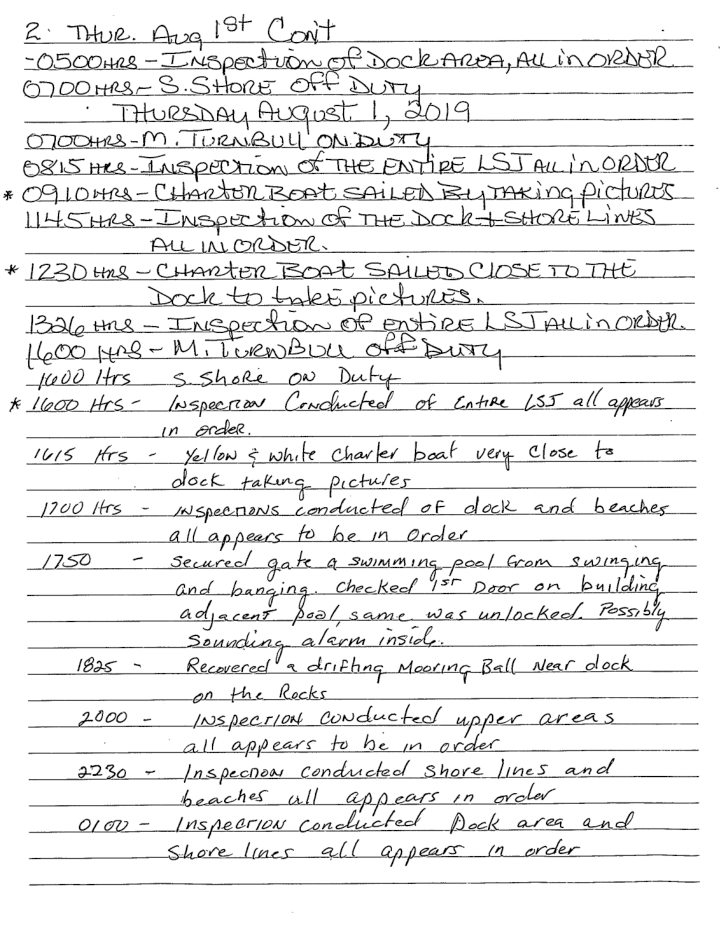 2. THUR. Aug 1st Con't
-0500HRS - INSpection of Dock AREA, All in ORDER
0700HRS - S. SHORE Off DUTY
THURSDAY August 1, 2019
0700HRS - M. TURNBULL ON DUTY
0815 HRS - INSPECTION of THE ENTIRE LSJ All in ORDER
* 0910HRS - CHARTER BOAT SAILED By TAKing pictures
1145HRS - INSpection of THE Dock + SHORE LINES
ALL IN ORDER.
* 1230 HRS - CHARTER BOAT SAILED CLOSE TO THE
Dock to take pictures.
1326 HRS - INSpection of entire LSJ All in ORDER.
1600 HRS - M. TURNBULL off DUTY
1600 Hrs S. Shore ON Duty
* 1600 Hrs - INSpection Conducted of Entire LSJ all appears
in order.
1615 Hrs - Yellow & white Charter boat very Close to
dock taking pictures
1700 Hrs - INSpections conducted of dock and beaches
all appears to be in Order
1750 - Secured gate @ swimming pool from swinging
and banging. Checked 1st Door on building
adjacent pool, same was unlocked. Possibly
Sounding alarm inside.
1825 - Recovered a drifting Mooring Ball Near dock
on the Rocks
2000 - INSpection conducted upper areas
all appears to be in order
2230 - Inspection conducted Shore lines and
beaches all appears in order
0100 - Inspection conducted Dock area and
Shore lines all appears in order